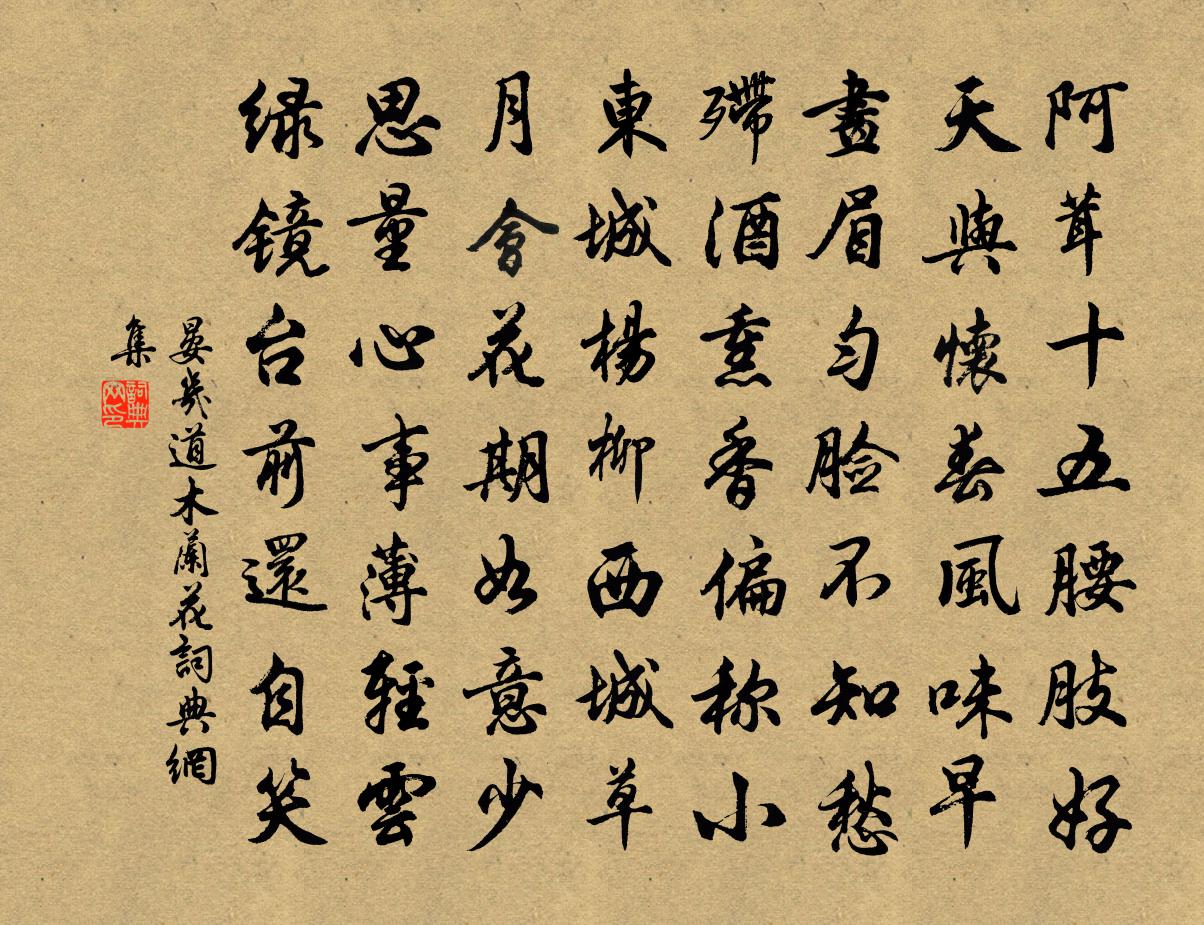 阿茸十五腰肢好
天與懷春風味早
畫眉勻脸不知愁
殢酒熏香偏称小
東城楊柳西城草
月會花期如意少
思量心事薄輕雲
绿镜台前還自笑
晏幾道木蘭花詞典網
集
詞典网印